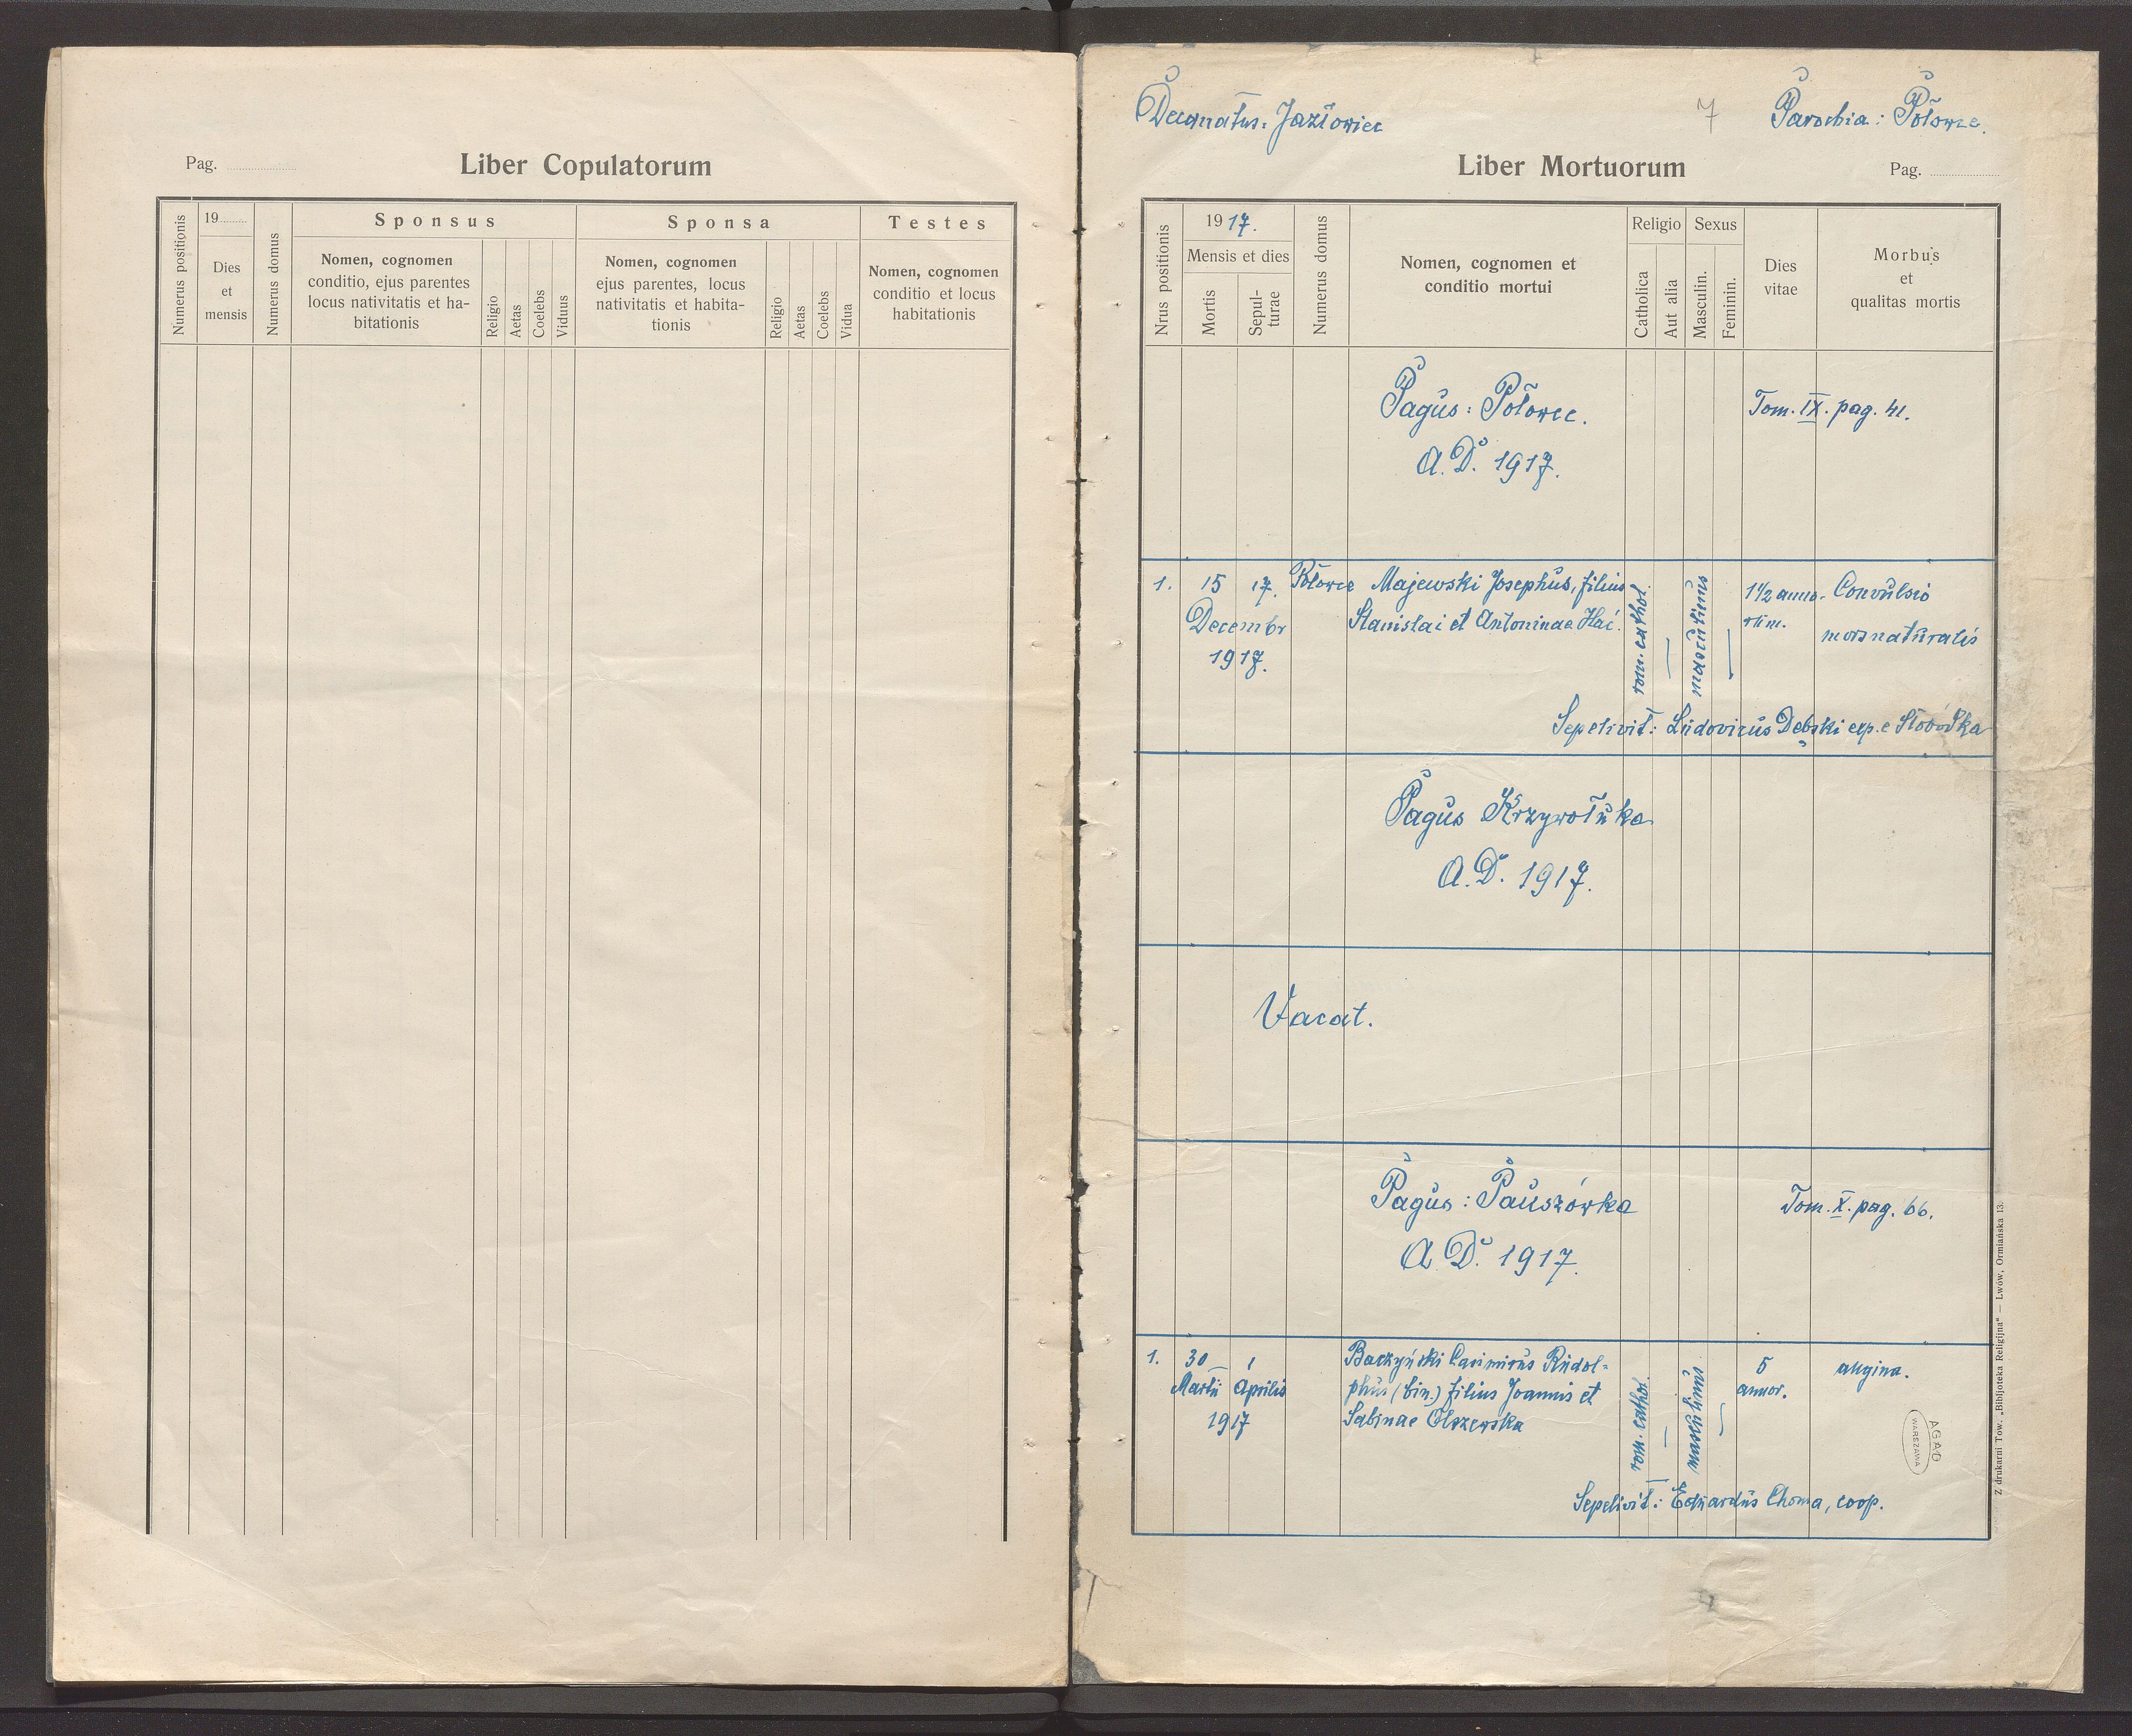 Pag.
Liber Copulatorum
Numerus positionis
19
Dies
et
mensis
Numerus domus
Sponsus
Nomen, cognomen
conditio, ejus parentes
locus nativitatis et ha-
bitationis
Religio
Aetas
Coelebs
Viduus
Sponsa
Nomen, cognomen
ejus parentes, locus
nativitatis et habita-
tionis
Religio
Aetas
Coelebs
Vidua
Testes
Nomen, cognomen
conditio et locus
habitationis
Decanatus: Jazłowiec
7
Parochia: Połowce.
Liber Mortuorum
Pag.
Nrus positionis
1917.
Mensis et dies
Mortis
Sepul-
turae
Numerus domus
Nomen, cognomen et
conditio mortui
Religio
Catholica
Aut alia
Sexus
Masculin.
Feminin.
Dies
vitae
Morbus
et
qualitas mortis
Pagus: Połowce.
A.D. 1917.
Tom. IX. pag. 41.
1. 15 17. Połowce Majewski Josephus, filius
Decembr
1917.
Stanislai et Antoninae Hać.
rom. cathol.
masculinus
1 1/2 anno-
rum.
Convulsio
mors naturalis
Sepelivit: Ludovicus Dębski exp. e Słobódka
Pagus Krzywołuka
A.D. 1917.
Vacat.
Pagus: Pauszówka
A.D. 1917.
Tom. X. pag. 66.
1. 30 1
Martii Aprilis
1917
Baczyński Casimirus Rudol-
phus (bin.) filius Joannis et
Sabinae Olszewska
rom. cathol.
masculinus
5
annor.
angina.
Sepelivit: Eduardus Choma, coop.
AGAD
WARSZAWA
Z drukarni Tow. „Bibljoteka Religijna" — Lwów, Ormiańska 13.